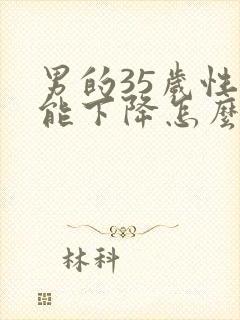 男的35歲性
能下降怎麼
林科